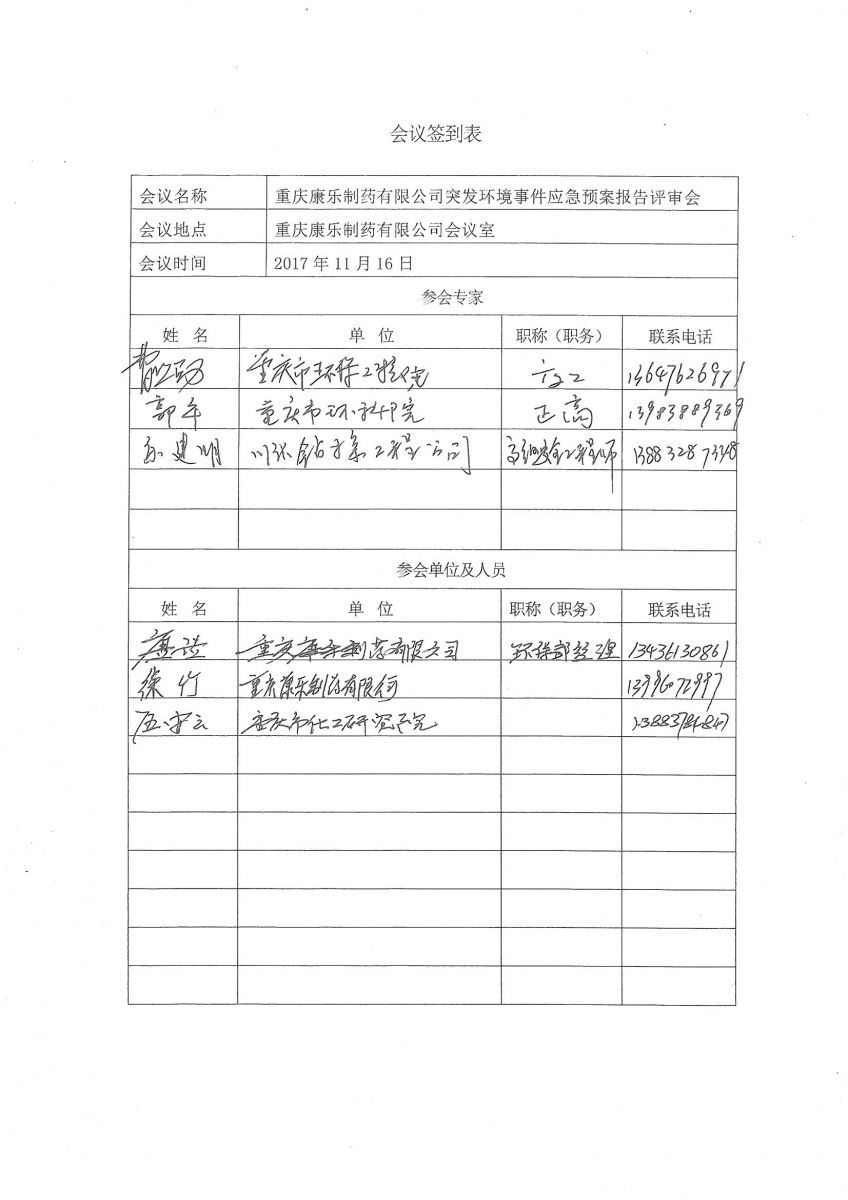 会议签到表
会议名称 重庆康乐制药有限公司突发环境事件应急预案报告评审会
会议地点 重庆康乐制药有限公司会议室
会议时间 2017 年 11 月 16 日
参会专家
姓 名 单 位 职称(职务) 联系电话
重庆市环保工程 13647626971
郭华 重庆市环科院 正高 13983889369
建明 川庆钻探工程公司 高级安全工程师 13883287348
参会单位及人员
姓 名 单 位 职称(职务) 联系电话
重庆康乐制药有限公司 环保部经理 13436130861
徐竹 重庆康乐制药有限公司
重庆市化工研究院